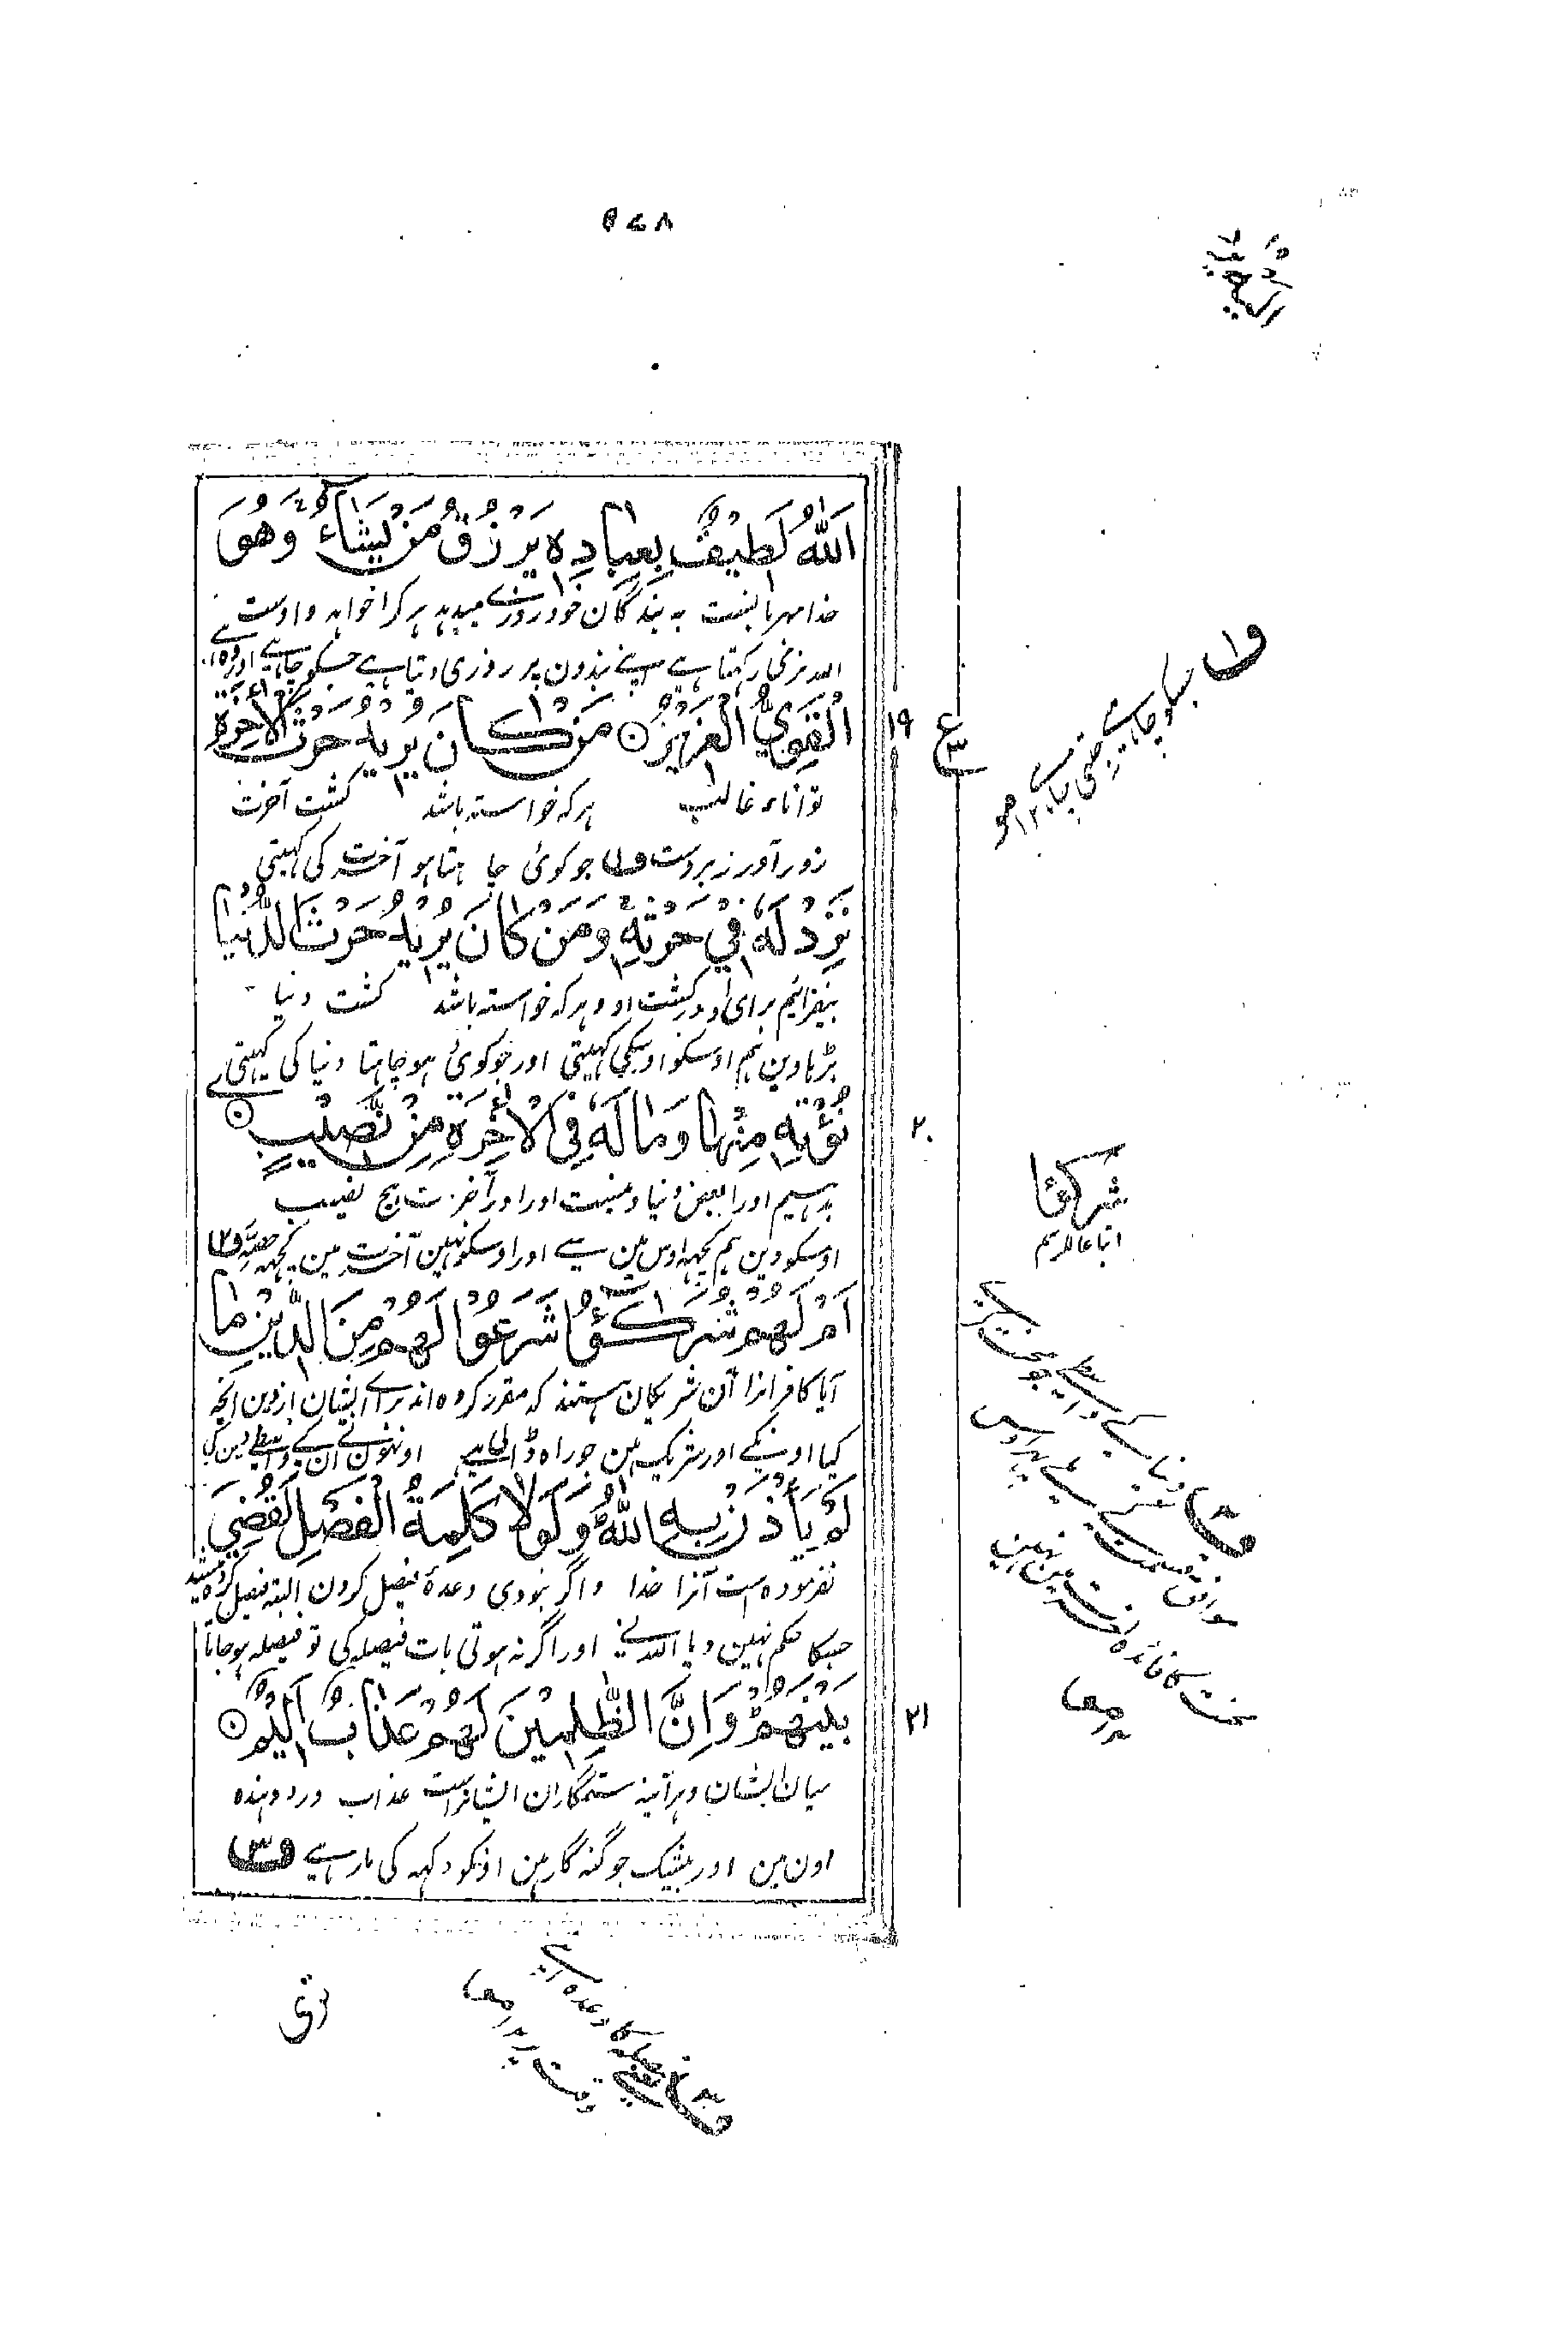 ۵۷۸
اَللّٰهُ لَطِيْفٌۢ بِعِبَادِهٖ يَرْزُقُ مَنْ يَّشَآءُ وَهُوَ
خدا مهربانست به بندگان خود روزی میدهد هر کرا خواهد و اوست
الله نرمی رکهتا ہے اپنے بندون پر روزی دیتا ہے جسکو چاہے اور وہ ہے
الْقَوِيُّ الْعَزِيْزُ مَنْ كَانَ يُرِيْدُ حَرْثَ الْاٰخِرَةِ
۱۹
ع
۳
توانا، غالب هر که خواسته باشد کشت آخرت
زور آور زبردست ف۱ جو کوئی چاہتا ہو آخرت کی کہیتی
نَزِدْ لَهٗ فِيْ حَرْثِهٖ وَمَنْ كَانَ يُرِيْدُ حَرْثَ الدُّنْيَا
بیفزائیم برای او در کشت او و هر که خواسته باشد کشت دنیا
بڑہاوین ہم اوسکو اوسکی کہیتی اور جو کوئی ہو چاہتا دنیا کی کہیتی
نُؤْتِهٖ مِنْهَا وَمَا لَهٗ فِي الْاٰخِرَةِ مِنْ نَّصِيْبٍ
۲۰
بدهیم اورا بعض دنیا و نیست اورا در آخرت هیچ نصیب
اوسکو دین ہم کچہہ اوس مین سے اور اوسکو نہین آخرت مین کچہہ حصہ ف۲
اَمْ لَهُمْ شُرَكٰٓؤُا شَرَعُوْا لَهُمْ مِّنَ الدِّيْنِ مَا
آیا کافرانرا آن شریکان هستند که مقرر کرده اند برای ایشان از دین انچه
کیا اونکے اور شریک ہین جو راہ ڈالی ہے اونہون نے ان کے واسطے دین کی
لَمْ يَاْذَنْۢ بِهِ اللّٰهُ وَلَوْلَا كَلِمَةُ الْفَصْلِ لَقُضِيَ
نفرموده است آنرا خدا و اگر نبودی وعدهٔ فیصل کردن البته فیصل کرده میشد
جسکا حکم نہین دیا اللہ نے اور اگر نہ ہوتی بات فیصلہ کی تو فیصلہ ہو جاتا
بَيْنَهُمْ وَاِنَّ الظّٰلِمِيْنَ لَهُمْ عَذَابٌ اَلِيْمٌ
۲۱
میان ایشان و هر آئینه ستمگاران ایشانراست عذاب درد دهنده
اون مین اور بیشک جو گنہ گار ہین اونکو دکہہ کی مار ہے ف۳
ف۱ جسکو چاہے جتنی چاہے ۱۲ مو
شركٰؤا
ف۲ دنیا کے واسطے جو محنت کرے
موافق قسمت کے ملے پہر اوس
محنت کا فائدہ آخرت مین نہین
ف۳ یعنے فیصلہ کا وعدہ ہے
وقت پر
تری